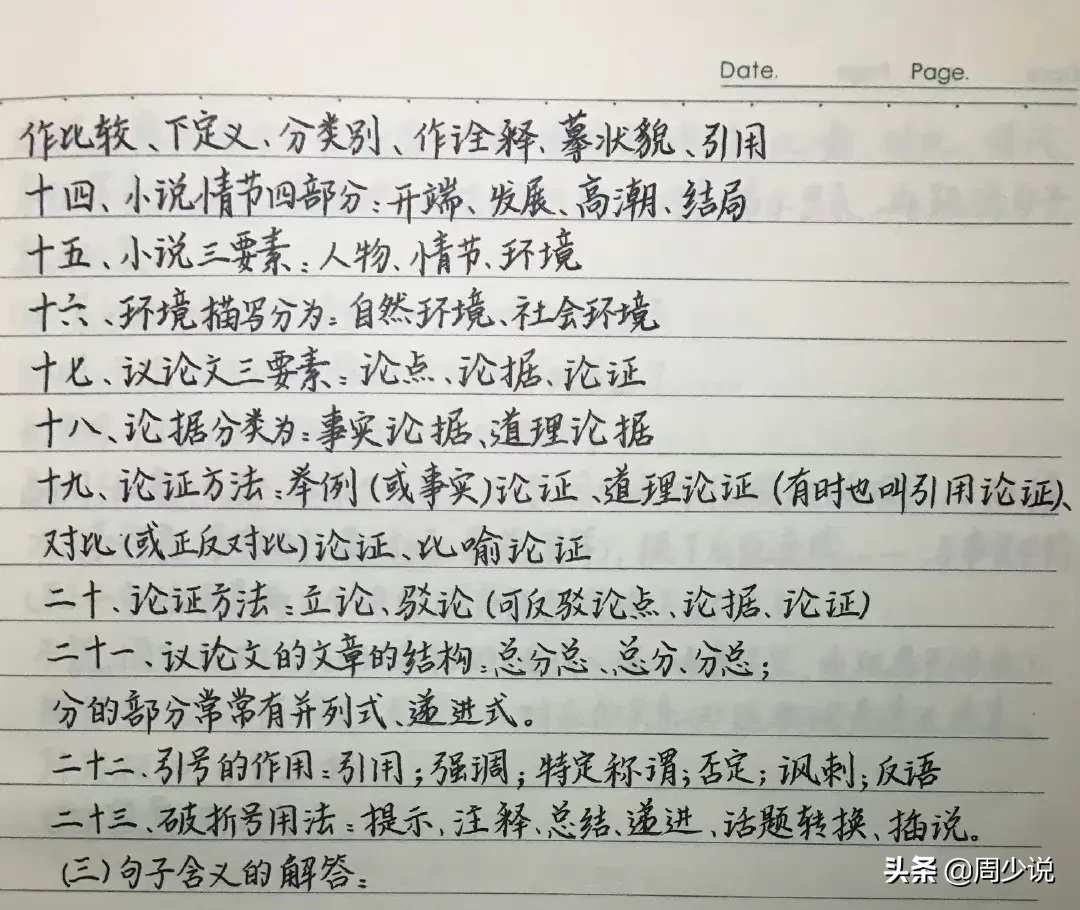 Date.    Page.
作比较、下定义、分类别、作诠释、摹状貌、引用
十四、小说情节四部分:开端、发展、高潮、结局
十五、小说三要素:人物、情节、环境
十六、环境描写分为:自然环境、社会环境
十七、议论文三要素:论点、论据、论证
十八、论据分类为:事实论据、道理论据
十九、论证方法:举例(或事实)论证、道理论证(有时也叫引用论证)、
对比(或正反对比)论证、比喻论证
二十、论证方法:立论、驳论(可反驳论点、论据、论证)
二十一、议论文的文章的结构:总分总、总分、分总;
分的部分常常有并列式、递进式。
二十二、引号的作用:引用;强调;特定称谓;否定;讽刺;反语
二十三、破折号用法:提示、注释、总结、递进、话题转换、插说。
(三)句子含义的解答:
头条 @周少说